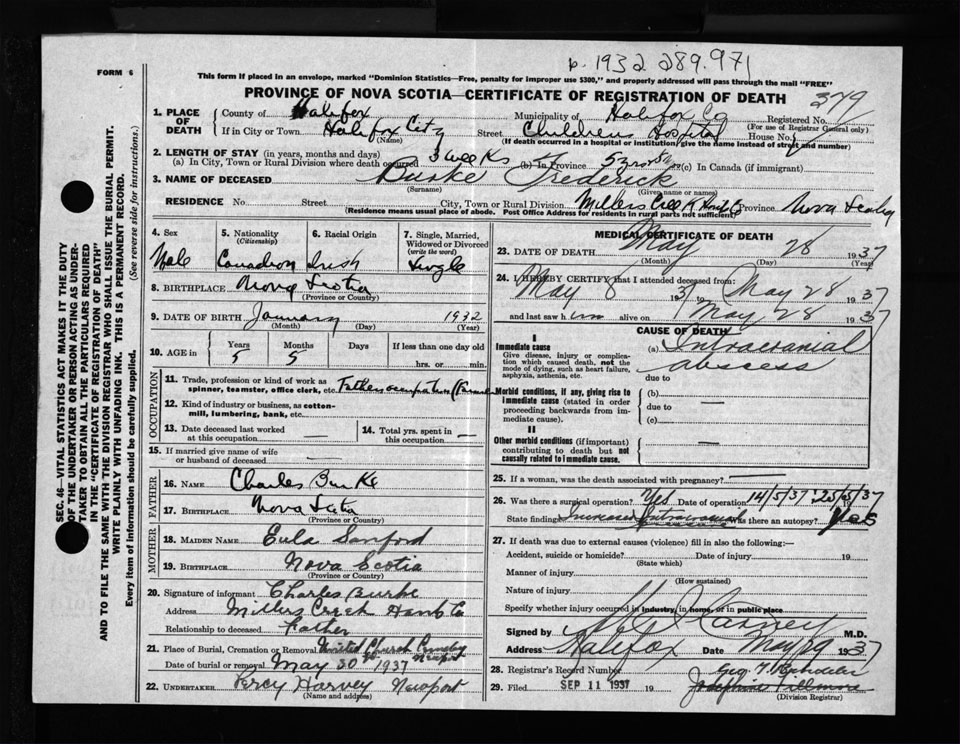 b. 1932 289.971
FORM 6
This form if placed in an envelope, marked "Dominion Statistics—Free, penalty for improper use $300," and properly addressed will pass through the mail "FREE"
PROVINCE OF NOVA SCOTIA—CERTIFICATE OF REGISTRATION OF DEATH
379
1. PLACE OF DEATH County of Halifax Municipality of Halifax Co Registered No. (For use of Registrar General only)
If in City or Town Halifax City (Name) Street Childrens Hospital House No.
(If death occurred in a hospital or institution give the name instead of street and number)
2. LENGTH OF STAY (in years, months and days)
(a) In City, Town or Rural Division where death occurred 3 weeks (b) In Province 5 yrs 5 (c) In Canada (if immigrant)
3. NAME OF DECEASED Burke Frederick
(Surname) (Given name or names)
RESIDENCE No. Street City, Town or Rural Division Millers Creek Hants Co Province Nova Scotia
(Residence means usual place of abode. Post Office Address for residents in rural parts not sufficient)
4. Sex Male
5. Nationality (Citizenship) Canadian
6. Racial Origin Irish
7. Single, Married, Widowed or Divorced (write the word) Single
8. BIRTHPLACE Nova Scotia
(Province or Country)
9. DATE OF BIRTH January 1932
(Month) (Day) (Year)
10. AGE in Years 5 Months 5 Days If less than one day old hrs. or min.
OCCUPATION
11. Trade, profession or kind of work as spinner, teamster, office clerk, etc. Fathers occupation
12. Kind of industry or business, as cotton-mill, lumbering, bank, etc.
13. Date deceased last worked at this occupation —
14. Total yrs. spent in this occupation —
15. If married give name of wife or husband of deceased —
FATHER
16. NAME Charles Burke
17. BIRTHPLACE Nova Scotia
(Province or Country)
MOTHER
18. MAIDEN NAME Eula Sanford
19. BIRTHPLACE Nova Scotia
(Province or Country)
20. Signature of informant Charles Burke
Address Millers Creek Hants Co
Relationship to deceased Father
21. Place of Burial, Cremation or Removal United Church Newport
Date of burial or removal May 30 1937
22. UNDERTAKER Percy Harvey Newport
(Name and address)
MEDICAL CERTIFICATE OF DEATH
23. DATE OF DEATH May 28 1937
(Month) (Day) (Year)
24. I HEREBY CERTIFY that I attended deceased from:
May 8 1937 to May 28 1937
and last saw him alive on May 28 1937
CAUSE OF DEATH
I
Immediate cause
Give disease, injury or complication which caused death, not the mode of dying, such as heart failure, asphyxia, asthenia, etc.
(a) Intracranial abscess
due to
Morbid conditions, if any, giving rise to immediate cause (stated in order proceeding backwards from immediate cause).
(b)
due to —
(c)
II
Other morbid conditions (if important) contributing to death but not causally related to immediate cause. —
25. If a woman, was the death associated with pregnancy? —
26. Was there a surgical operation? Yes Date of operation 14/5/37 25/5/37
State findings Increased intracranial Was there an autopsy? Yes
27. If death was due to external causes (violence) fill in also the following:—
Accident, suicide or homicide? Date of injury 19
(State which)
Manner of injury
(How sustained)
Nature of injury
Specify whether injury occurred in industry, in home, or in public place
Signed by M.D.
Address Halifax Date May 29 1937
28. Registrar's Record Number
29. Filed SEP 11 1937 19
(Division Registrar)
SEC. 46—VITAL STATISTICS ACT MAKES IT THE DUTY
OF THE UNDERTAKER OR PERSON ACTING AS UNDER-
TAKER TO OBTAIN ALL THE PARTICULARS REQUIRED
IN THE "CERTIFICATE OF REGISTRATION OF DEATH"
AND TO FILE THE SAME WITH THE DIVISION REGISTRAR WHO SHALL ISSUE THE BURIAL PERMIT.
WRITE PLAINLY WITH UNFADING INK. THIS IS A PERMANENT RECORD.
Every item of Information should be carefully supplied. (See reverse side for instructions.)